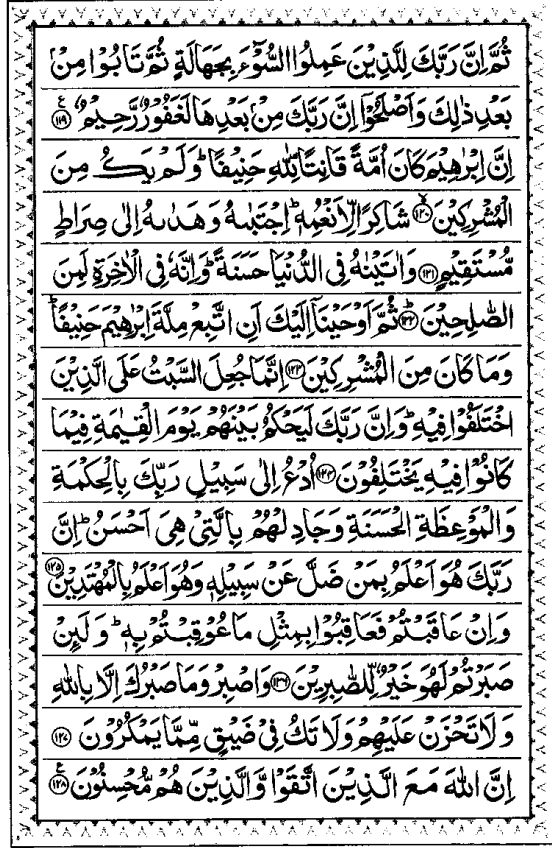 ثُمَّ اِنَّ رَبَّكَ لِلَّذِيۡنَ عَمِلُوا السُّوۡٓءَ بِجَهَالَةٍ ثُمَّ تَابُوۡا مِنۡۢ
بَعۡدِ ذٰلِكَ وَاَصۡلَحُوۡۤا اِنَّ رَبَّكَ مِنۡۢ بَعۡدِهَا لَغَفُوۡرٌ رَّحِيۡمٌ ﴿۱۱۹﴾ ع
اِنَّ اِبۡرٰهِيۡمَ كَانَ اُمَّةً قَانِتًا لِّلّٰهِ حَنِيۡفًا ؕ وَلَمۡ يَكُ مِنَ
الۡمُشۡرِكِيۡنَ ﴿۱۲۰﴾ۙ شَاكِرًا لِّاَنۡعُمِهٖ ؕ اِجۡتَبٰٮهُ وَهَدٰٮهُ اِلٰى صِرَاطٍ
مُّسۡتَقِيۡمٍ ﴿۱۲۱﴾ وَاٰتَيۡنٰهُ فِى الدُّنۡيَا حَسَنَةً ؕ وَاِنَّهٗ فِى الۡاٰخِرَةِ لَمِنَ
الصّٰلِحِيۡنَ ﴿۱۲۲﴾ؕ ثُمَّ اَوۡحَيۡنَاۤ اِلَيۡكَ اَنِ اتَّبِعۡ مِلَّةَ اِبۡرٰهِيۡمَ حَنِيۡفًا ؕ
وَمَا كَانَ مِنَ الۡمُشۡرِكِيۡنَ ﴿۱۲۳﴾ اِنَّمَا جُعِلَ السَّبۡتُ عَلَى الَّذِيۡنَ
اخۡتَلَفُوۡا فِيۡهِ ؕ وَاِنَّ رَبَّكَ لَيَحۡكُمُ بَيۡنَهُمۡ يَوۡمَ الۡقِيٰمَةِ فِيۡمَا
كَانُوۡا فِيۡهِ يَخۡتَلِفُوۡنَ ﴿۱۲۴﴾ اُدۡعُ اِلٰى سَبِيۡلِ رَبِّكَ بِالۡحِكۡمَةِ
وَالۡمَوۡعِظَةِ الۡحَسَنَةِ وَجَادِلۡهُمۡ بِالَّتِىۡ هِىَ اَحۡسَنُ ؕ اِنَّ
رَبَّكَ هُوَ اَعۡلَمُ بِمَنۡ ضَلَّ عَنۡ سَبِيۡلِهٖ وَهُوَ اَعۡلَمُ بِالۡمُهۡتَدِيۡنَ ﴿۱۲۵﴾
وَاِنۡ عَاقَبۡتُمۡ فَعَاقِبُوۡا بِمِثۡلِ مَا عُوۡقِبۡتُمۡ بِهٖ ؕ وَلَئِنۡ
صَبَرۡتُمۡ لَهُوَ خَيۡرٌ لِّلصّٰبِرِيۡنَ ﴿۱۲۶﴾ وَاصۡبِرۡ وَمَا صَبۡرُكَ اِلَّا بِاللّٰهِ
وَلَا تَحۡزَنۡ عَلَيۡهِمۡ وَلَا تَكُ فِىۡ ضَيۡقٍ مِّمَّا يَمۡكُرُوۡنَ ﴿۱۲۷﴾
اِنَّ اللّٰهَ مَعَ الَّذِيۡنَ اتَّقَوۡا وَّالَّذِيۡنَ هُمۡ مُّحۡسِنُوۡنَ ﴿۱۲۸﴾ ع